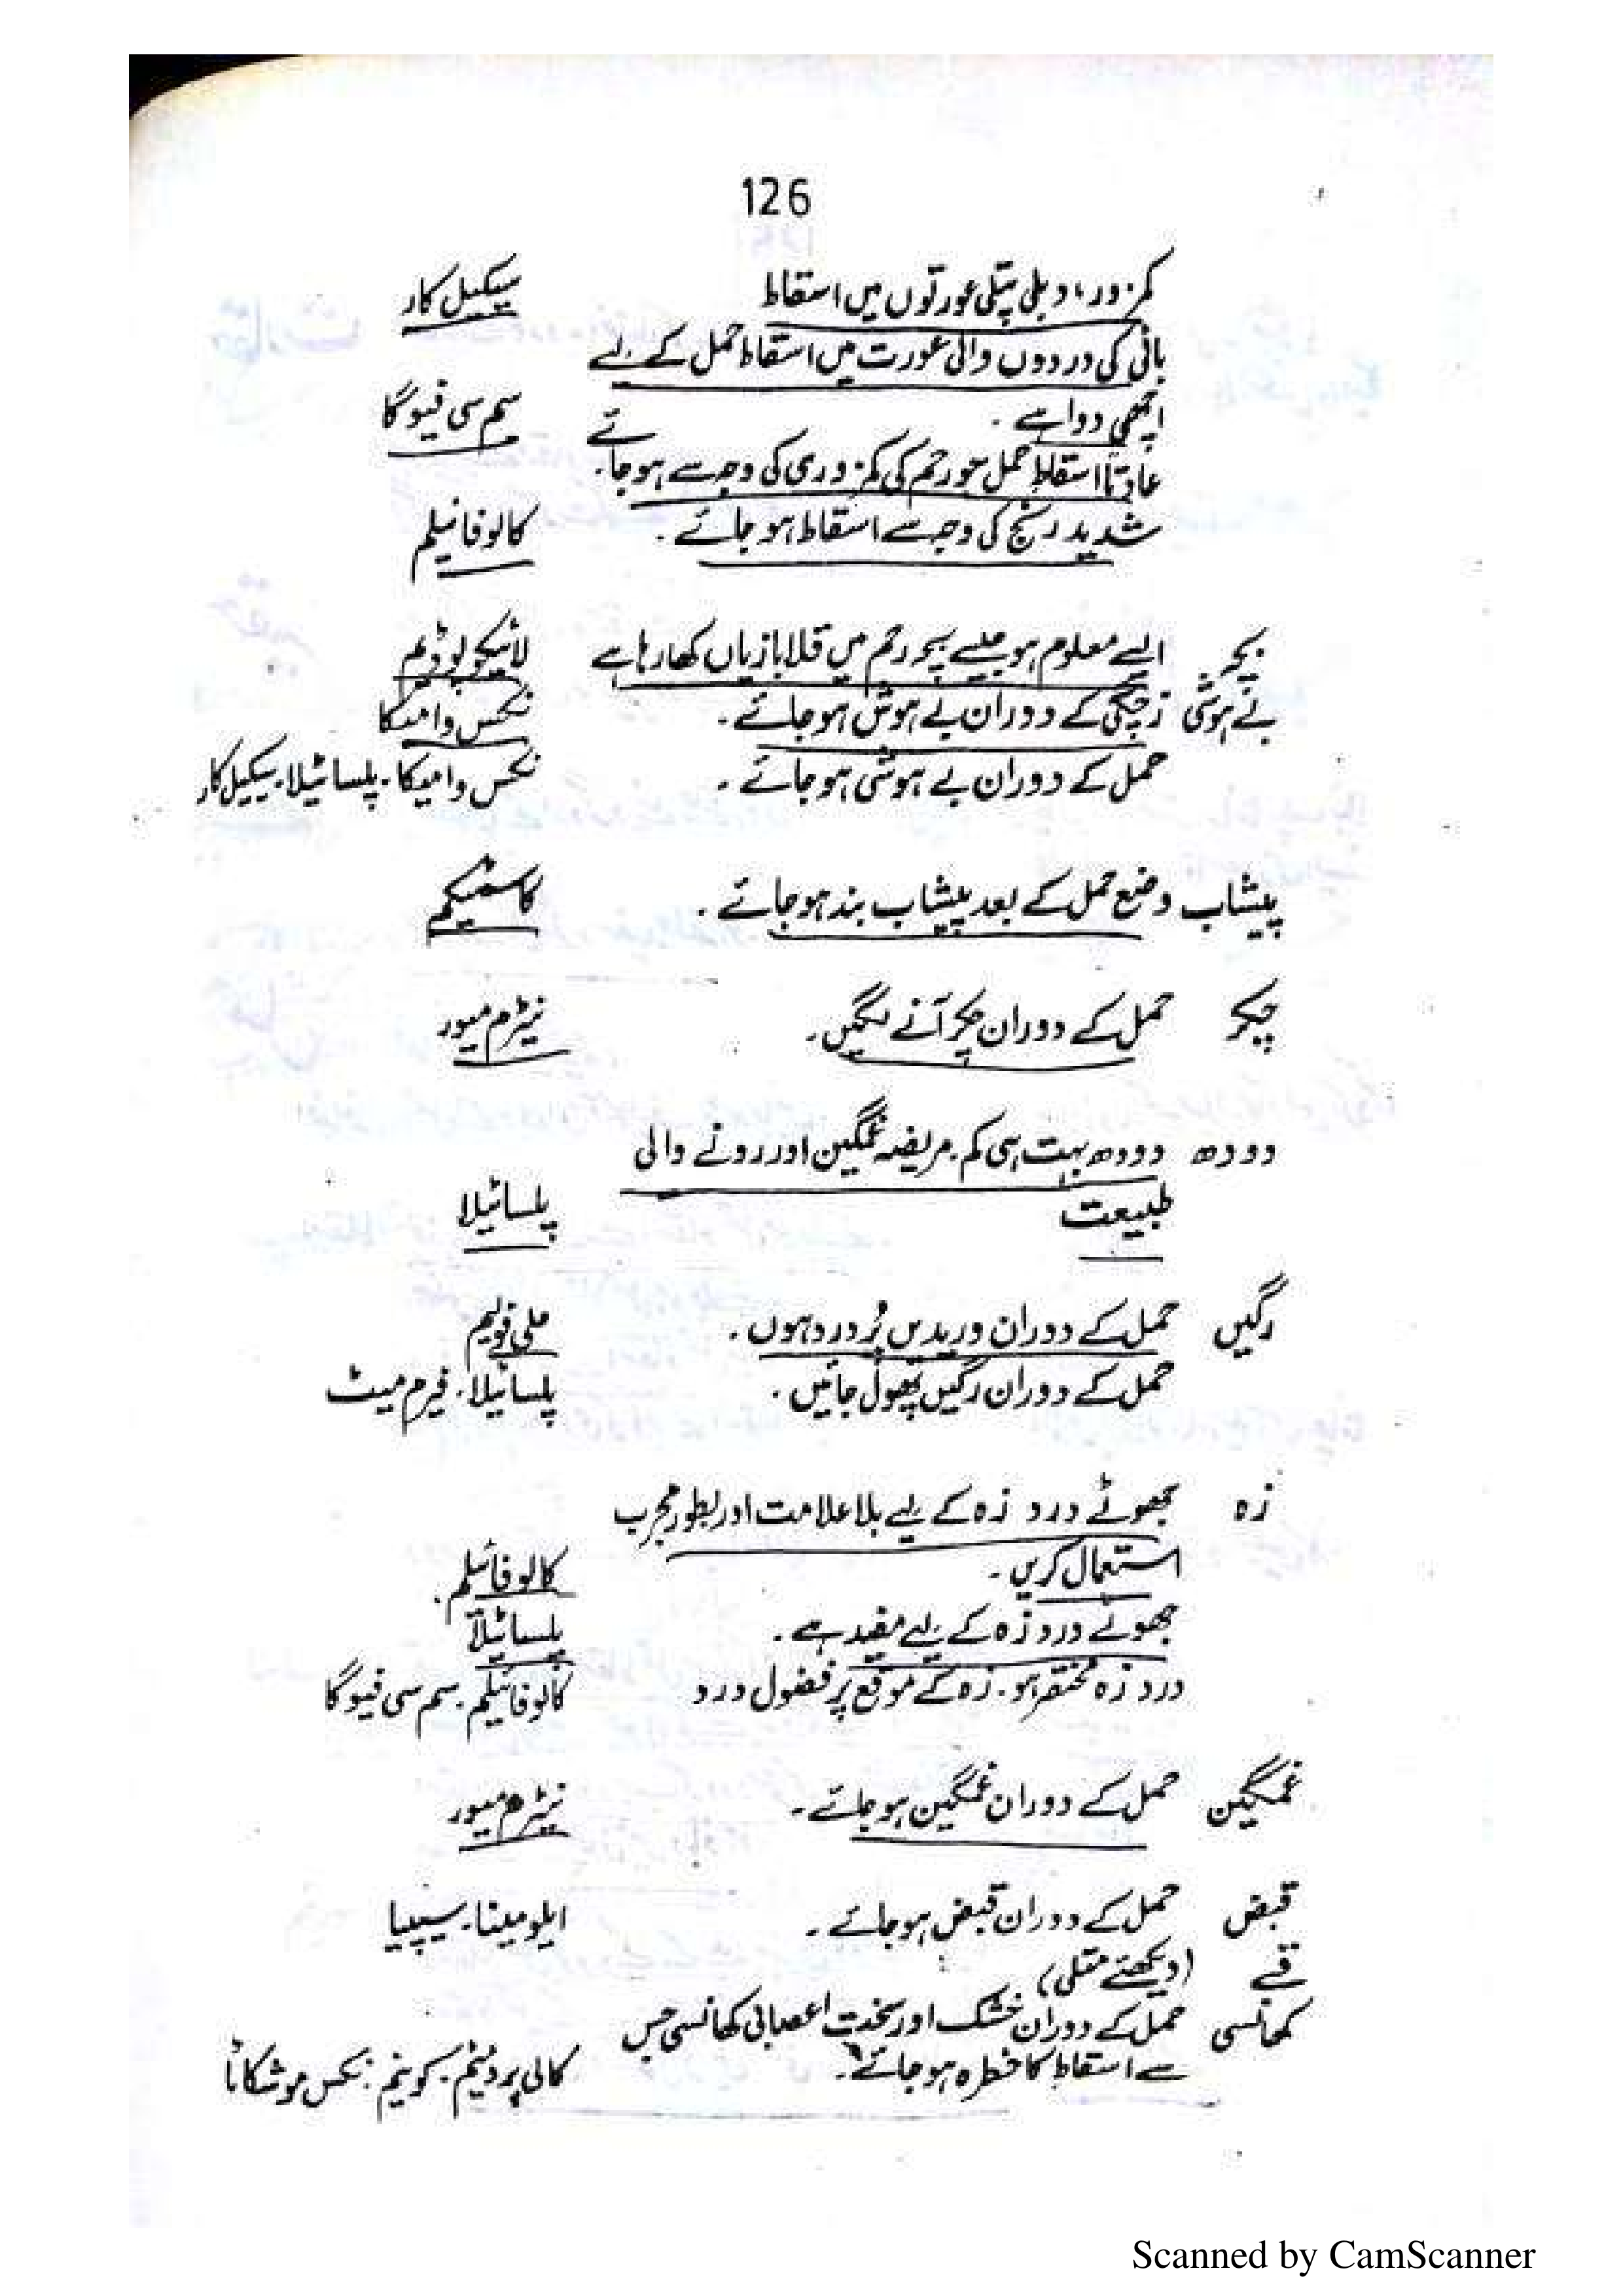 126
کمزور، دبلی پتلی عورتوں میں استقاط سیکیل کار
بائی کی دردوں والی عورت میں استقاط حمل کے لیے
اچھی دوا ہے۔ سم سی فیوگا
عادتاً استقاط حمل جو رحم کی کمزوری کی وجہ سے ہو جائے۔
شدید رنج کی وجہ سے استقاط ہو جائے۔ کالوفائیلم
بچہ ایسے معلوم ہو جیسے بچہ رحم میں قلابازیاں کھا رہا ہے لائیکوپوڈیم
بے ہوشی زچگی کے دوران بے ہوش ہو جائے۔ نکس وامیکا
حمل کے دوران بے ہوشی ہو جائے۔ نکس وامیکا۔ پلساٹیلا۔ سیکیل کار
پیشاب وضع حمل کے بعد پیشاب بند ہو جائے۔ کاسٹیکم
چکر حمل کے دوران چکر آنے لگیں۔ نیٹرم میور
دودھ دودھ بہت ہی کم۔ مریضہ غمگین اور رونے والی
طبیعت پلساٹیلا
رگیں حمل کے دوران وریدیں پُر درد ہوں۔ ملی فولیم
حمل کے دوران رگیں پھول جائیں۔ پلساٹیلا۔ فیرم میٹ
زہ جھوٹے درد زہ کے لیے بلا علامت اور بطور مجرب
استعمال کریں۔ کالوفائیلم۔
جھوٹے درد زہ کے لیے مفید ہے۔ پلساٹیلا
درد زہ مختصر ہو۔ زہ کے موقع پر فضول درد کالوفائیلم۔ سم سی فیوگا
غمگین حمل کے دوران غمگین ہو جائے۔ نیٹرم میور
قبض حمل کے دوران قبض ہو جائے۔ ایلومینا۔ سیپیا
قے (دیکھئے متلی)
کھانسی حمل کے دوران خشک اور سخت اعصابی کھانسی جس
سے استقاط کا خطرہ ہو جائے۔ کالی برومیٹم۔ کونیم۔ نکس موشکاٹا
Scanned by CamScanner